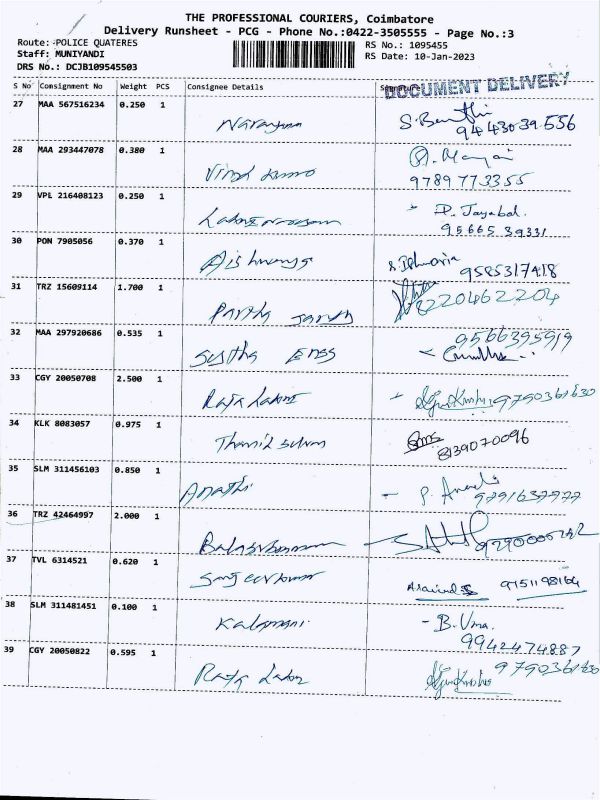 THE PROFESSIONAL COURIERS, Coimbatore
Delivery Runsheet - PCG - Phone No.:0422-3505555 - Page No.:3
Route: POLICE QUATERES
RS No.: 1095455
Staff: MUNIYANDI
RS Date: 10-Jan-2023
DRS No.: DCJB109545503
DOCUMENT DELIVERY
S No Consignment No Weight PCS Consignee Details Signature
27 MAA 567516234 0.250 1
Narayana
9443039556
28 MAA 293447078 0.380 1
9789773355
29 VPL 216408123 0.250 1
D. Jayabal.
95665 39331
30 PON 7905056 0.370 1
9585317418
31 TRZ 15609114 1.700 1
8220462204
32 MAA 297920686 0.535 1
9566395919
33 CGY 20050708 2.500 1
Raja Lakmi
9790361630
34 KLK 8083057 0.975 1
Thamil selvam
8139070096
35 SLM 311456103 0.850 1
Anathi
P. Anandi
9791637977
36 TRZ 42464997 2.000 1
37 TVL 6314521 0.620 1
Sanjeevkumar
Aravind S 9751198164
38 SLM 311481451 0.100 1
Kalamani
- B. Uma.
9942474887
39 CGY 20050822 0.595 1
9790361630